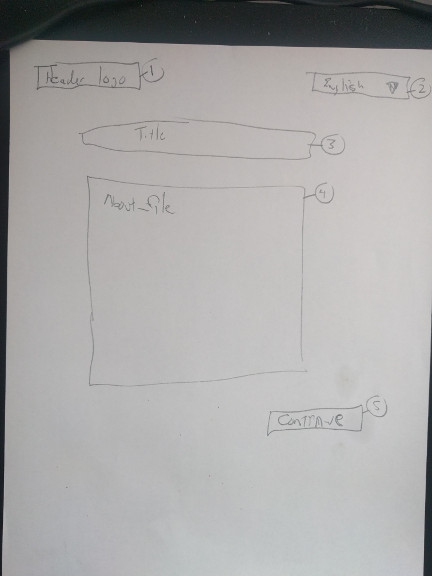 Header logo 1
English 2
Title 3
About_file 4
Continue 5